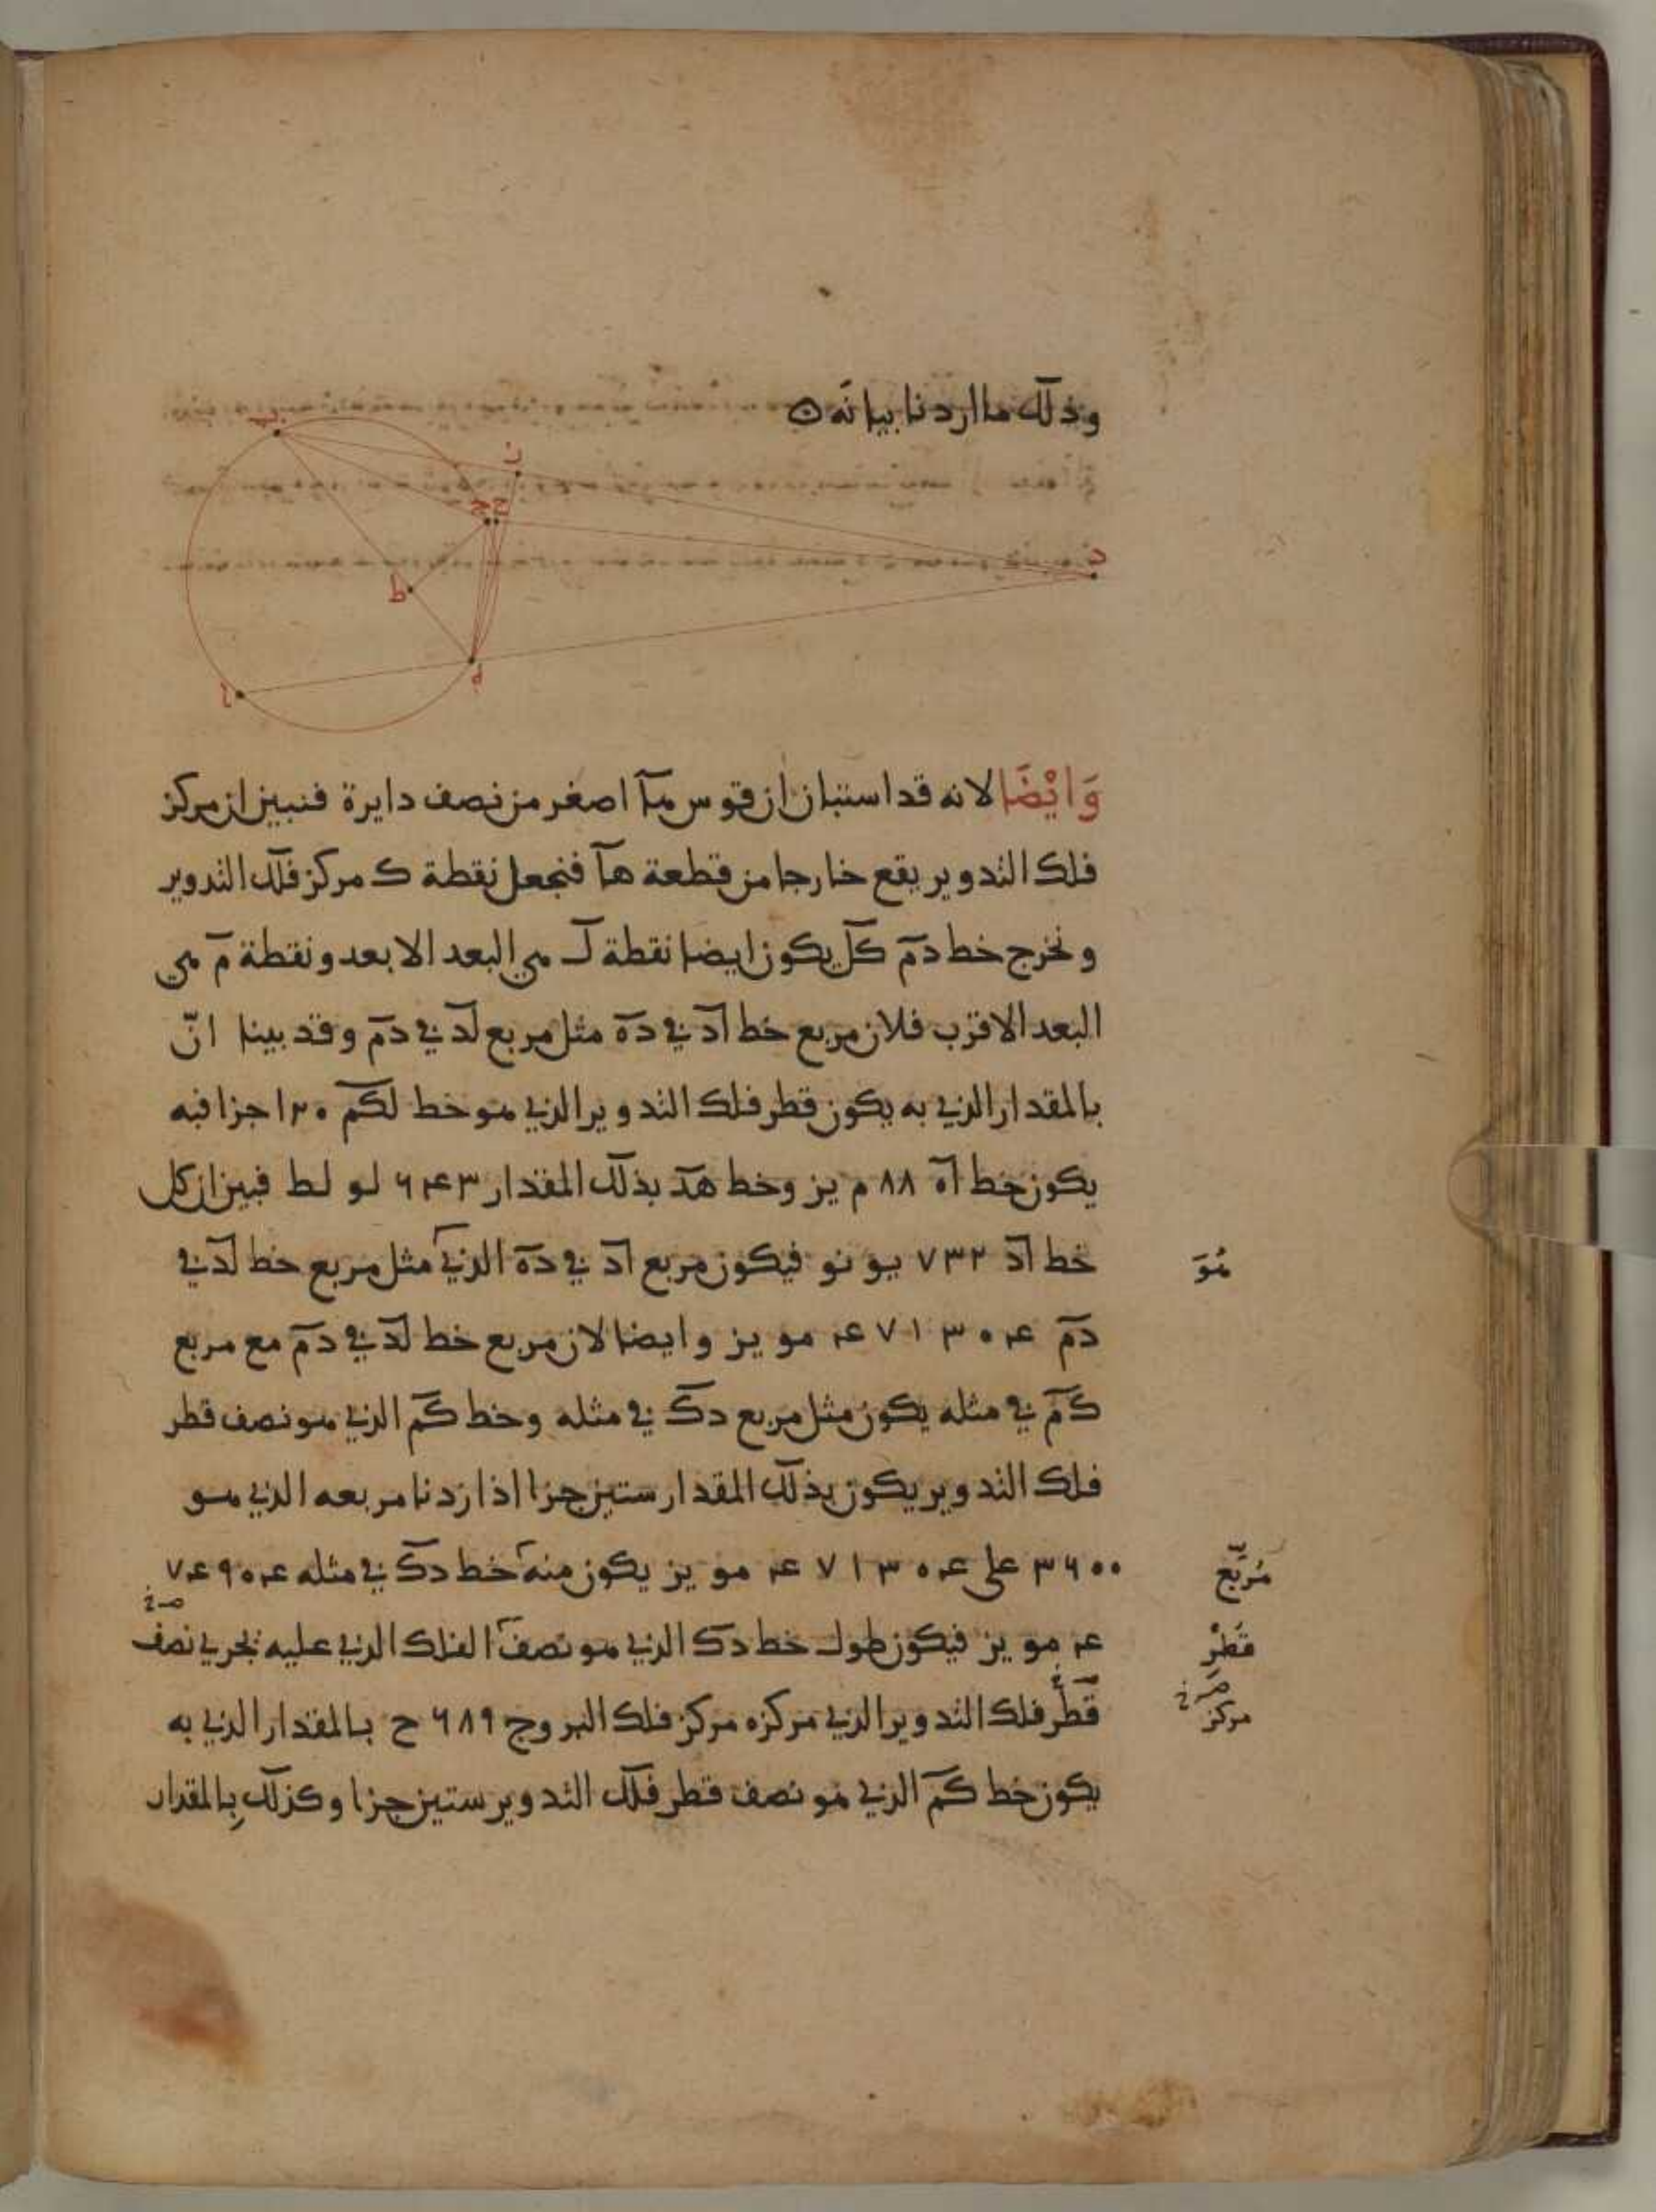 وذلك ما اردنا بيانه
ن
ح ج
د
ط
ه
وَايْضَا لانه قد استبان ان قوس مآ اصغر من نصف دايرة فنبين ان مركز
فلك التدوير يقع خارجا من قطعة هآ فنجعل نقطة ك مركز فلك التدوير
ونخرج خط دمٓ كلٓ يكون ايضا نقطة لـ هي البعد الابعد ونقطة مٓ هي
البعد الاقرب فلان مربع خط آد في دهٓ مثل مربع لد في دمٓ وقد بينا انّ
بالمقدار الذي به يكون قطر فلك التدوير الذي هو خط لكم ١٢٠ جزا فبه
يكون خط آه ٨٨ م يز وخط هد بذلك المقدار ٦٤٣ لو لط فبين ان كل
خط آد ٧٣٢ يو نو فيكون مربع آد في دهٓ الذي مثل مربع خط لد في
هُوَ
دمٓ ٤٧١٣٠٤ مو يز وايضا لان مربع خط لد في دمٓ مع مربع
كمٓ في مثله يكون مثل مربع دكٓ في مثله وخط كمٓ الذي هو نصف قطر
فلك التدوير يكون بذلك المقدار ستين جزا اذا زدنا مربعه الذي هو
٣٦٠٠ على ٤٧١٣٠٤ مو يز يكون منه خط دكٓ في مثله ٤٧٤٩٠٤
مُرَبَّع
مو يز فيكون طول خط دك الذي هو نصف الفلك الذي عليه يجري نصف
قُطْرِ
قَطْر فلك التدوير الذي مركزه مركز فلك البروج ٦٨٩ ح بالمقدار الذي به
مركز
يكون خط كمٓ الذي هو نصف قطر فلك التدوير ستين جزا وكذلك بِالمقدار